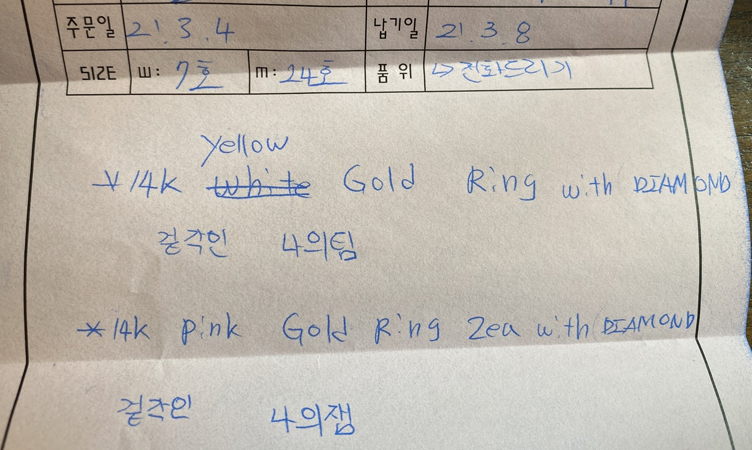 주문일 21. 3. 4 납기일 21. 3. 8
SIZE W: 7호 M: 24호 품위 ↳ 전화드리기
Yellow
* 14k White Gold Ring with DIAMOND
겉각인 나의팀
* 14k Pink Gold Ring Zea with DIAMOND
겉각인 나의잽